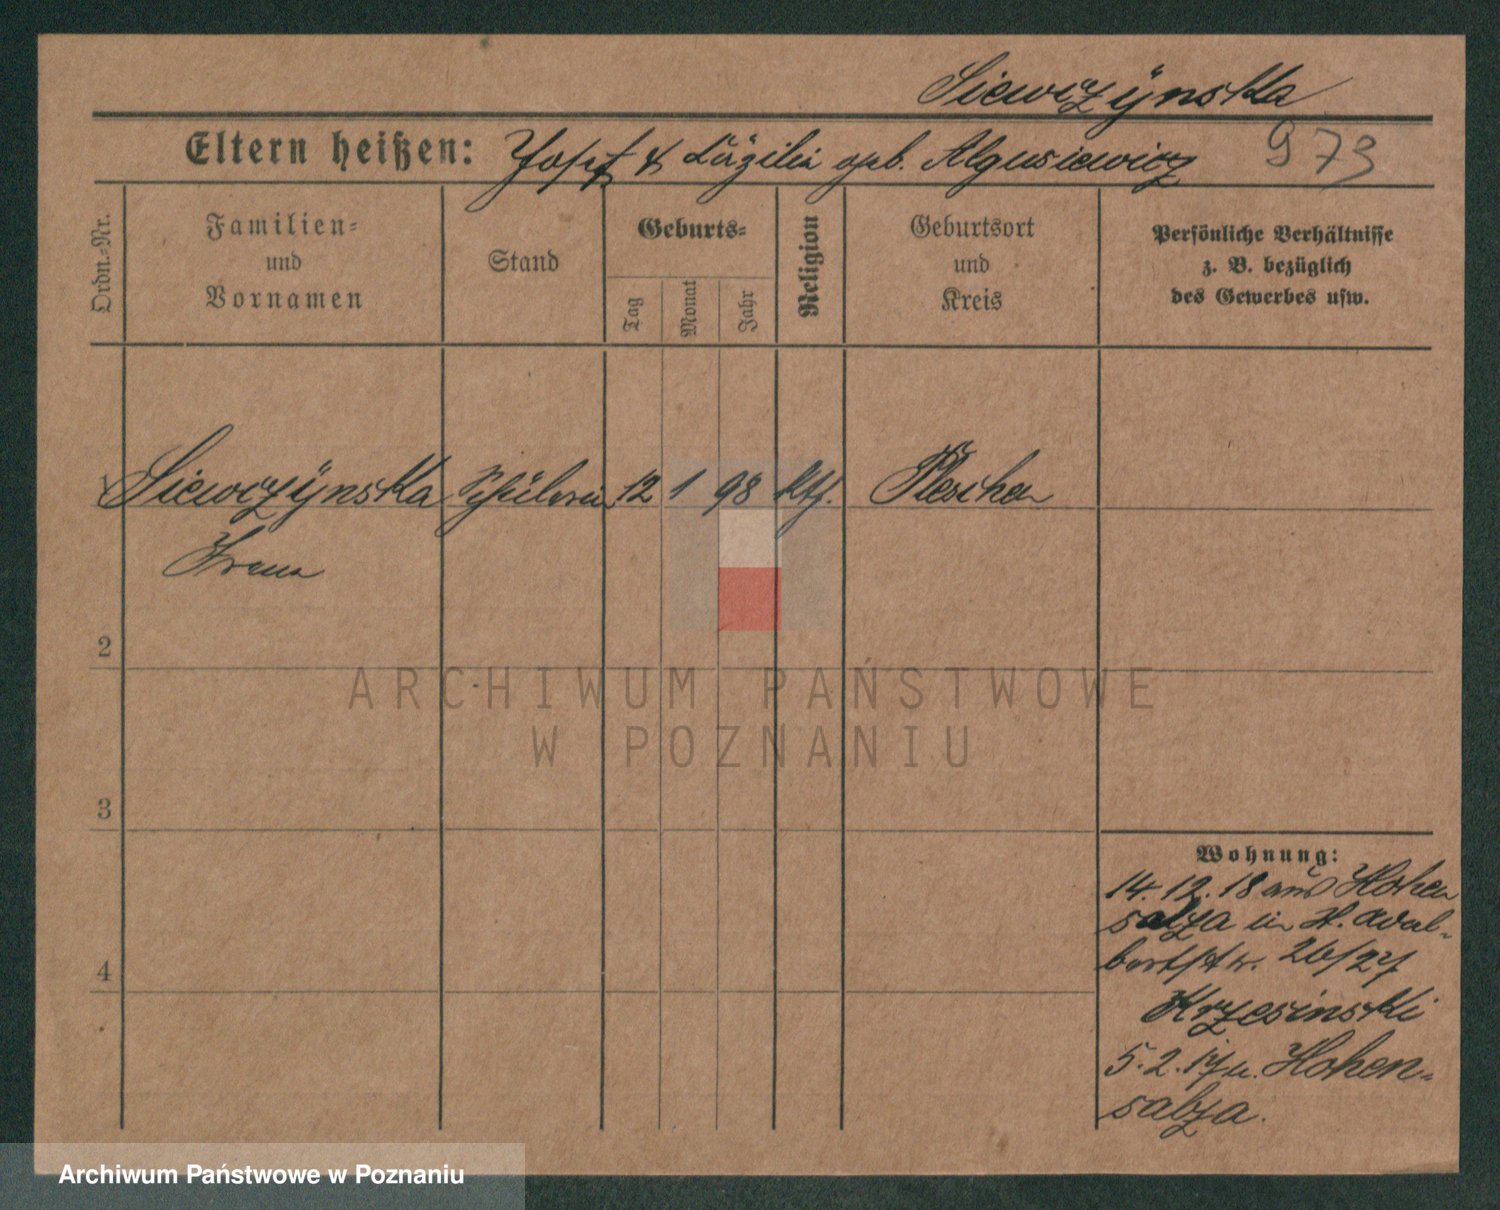 Siewczÿnska
Eltern heißen: Josef & Cäzilie geb. Algusiewicz 973
Ordn.-Nr.
Familien=
und
Vornamen
Stand
Geburts=
Tag
Monat
Jahr
Religion
Geburtsort
und
Kreis
Persönliche Verhältnisse
z. B. bezüglich
des Gewerbes usw.
1 Siewczÿnska Schülerin 12 1 98 kth. Pleschen
Irena
2
3
4
Wohnung:
14.12.18 aus Hohen
salza in St. Adal-
bertstr. 26/27
Krzesinski
5.2.17 n. Hohen-
salza.
ARCHIWUM PAŃSTWOWE
W POZNANIU
Archiwum Państwowe w Poznaniu